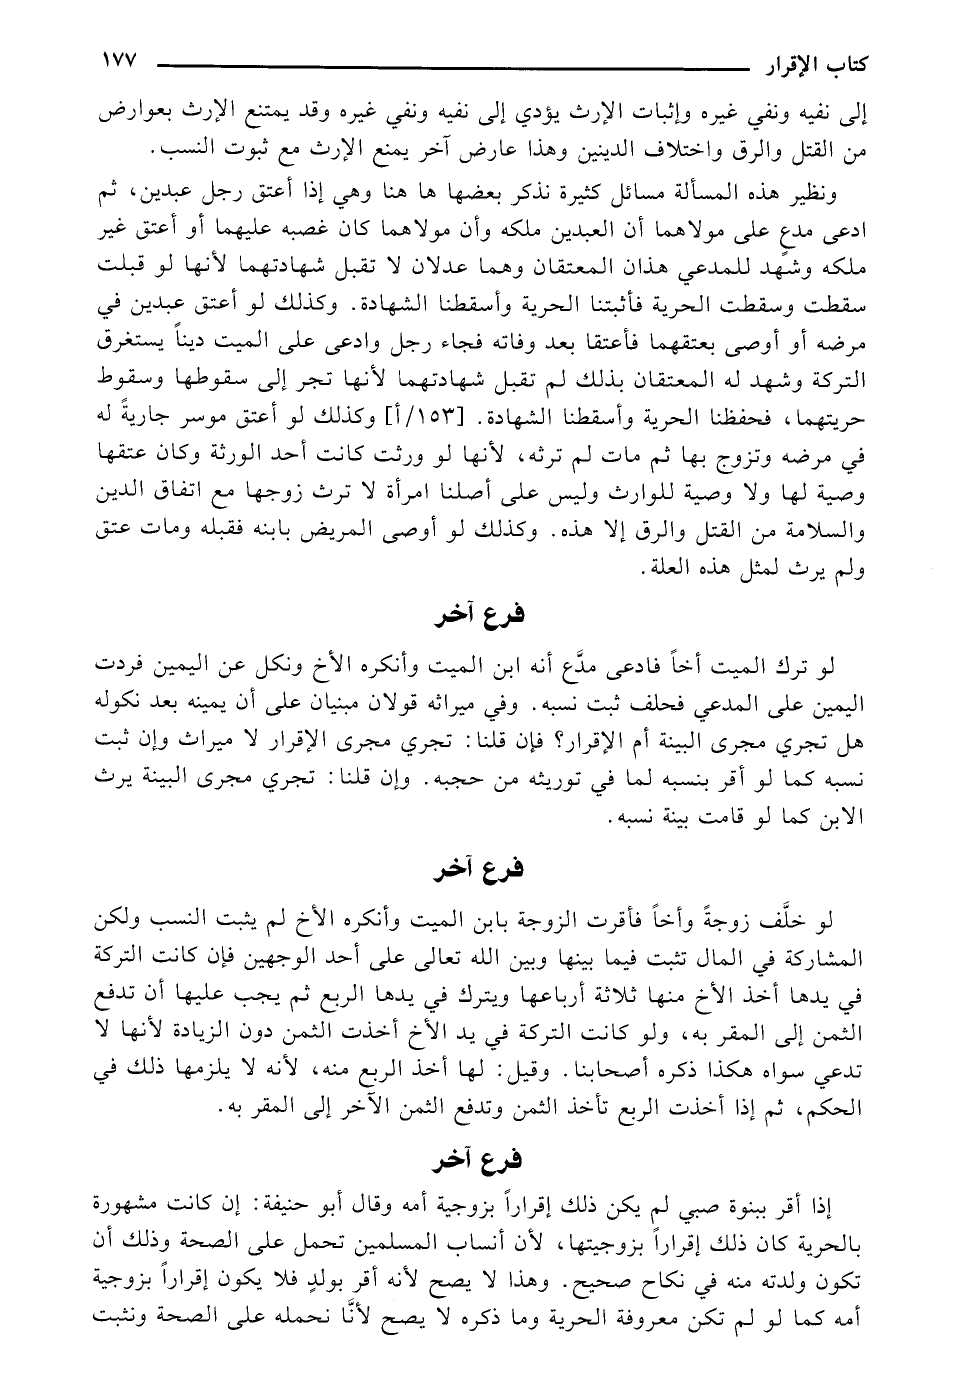 كتاب الإقرار ١٧٧
إلى نفيه ونفي غيره وإثبات الإرث يؤدي إلى نفيه ونفي غيره وقد يمتنع الإرث بعوارض
من القتل والرق واختلاف الدينين وهذا عارض آخر يمنع الإرث مع ثبوت النسب.
ونظير هذه المسألة مسائل كثيرة نذكر بعضها ها هنا وهي إذا أعتق رجل عبدين، ثم
ادعى مدعٍ على مولاهما أن العبدين ملكه وأن مولاهما كان غصبه عليهما أو أعتق غير
ملكه وشهد للمدعي هذان المعتقان وهما عدلان لا تقبل شهادتهما لأنها لو قبلت
سقطت وسقطت الحرية فأثبتنا الحرية وأسقطنا الشهادة. وكذلك لو أعتق عبدين في
مرضه أو أوصى بعتقهما فأعتقا بعد وفاته فجاء رجل وادعى على الميت ديناً يستغرق
التركة وشهد له المعتقان بذلك لم تقبل شهادتهما لأنها تجر إلى سقوطها وسقوط
حريتهما، فحفظنا الحرية وأسقطنا الشهادة. [١٥٣/أ] وكذلك لو أعتق موسر جاريةً له
في مرضه وتزوج بها ثم مات لم ترثه، لأنها لو ورثت كانت أحد الورثة وكان عتقها
وصية لها ولا وصية للوارث وليس على أصلنا امرأة لا ترث زوجها مع اتفاق الدين
والسلامة من القتل والرق إلا هذه. وكذلك لو أوصى المريض بابنه فقبله ومات عتق
ولم يرث لمثل هذه العلة.
فرع آخر
لو ترك الميت أخاً فادعى مدَّع أنه ابن الميت وأنكره الأخ ونكل عن اليمين فردت
اليمين على المدعي فحلف ثبت نسبه. وفي ميراثه قولان مبنيان على أن يمينه بعد نكوله
هل تجري مجرى البينة أم الإقرار؟ فإن قلنا: تجري مجرى الإقرار لا ميراث وإن ثبت
نسبه كما لو أقر بنسبه لما في توريثه من حجبه. وإن قلنا: تجري مجرى البينة يرث
الابن كما لو قامت بينة نسبه.
فرع آخر
لو خلَّف زوجةً وأخاً فأقرت الزوجة بابن الميت وأنكره الأخ لم يثبت النسب ولكن
المشاركة في المال تثبت فيما بينها وبين الله تعالى على أحد الوجهين فإن كانت التركة
في يدها أخذ الأخ منها ثلاثة أرباعها ويترك في يدها الربع ثم يجب عليها أن تدفع
الثمن إلى المقر به، ولو كانت التركة في يد الأخ أخذت الثمن دون الزيادة لأنها لا
تدعي سواه هكذا ذكره أصحابنا. وقيل: لها أخذ الربع منه، لأنه لا يلزمها ذلك في
الحكم، ثم إذا أخذت الربع تأخذ الثمن وتدفع الثمن الآخر إلى المقر به.
فرع آخر
إذا أقر ببنوة صبي لم يكن ذلك إقراراً بزوجية أمه وقال أبو حنيفة: إن كانت مشهورة
بالحرية كان ذلك إقراراً بزوجيتها، لأن أنساب المسلمين تحمل على الصحة وذلك أن
تكون ولدته منه في نكاح صحيح. وهذا لا يصح لأنه أقر بولدٍ فلا يكون إقراراً بزوجية
أمه كما لو لم تكن معروفة الحرية وما ذكره لا يصح لأنَّا نحمله على الصحة ونثبت